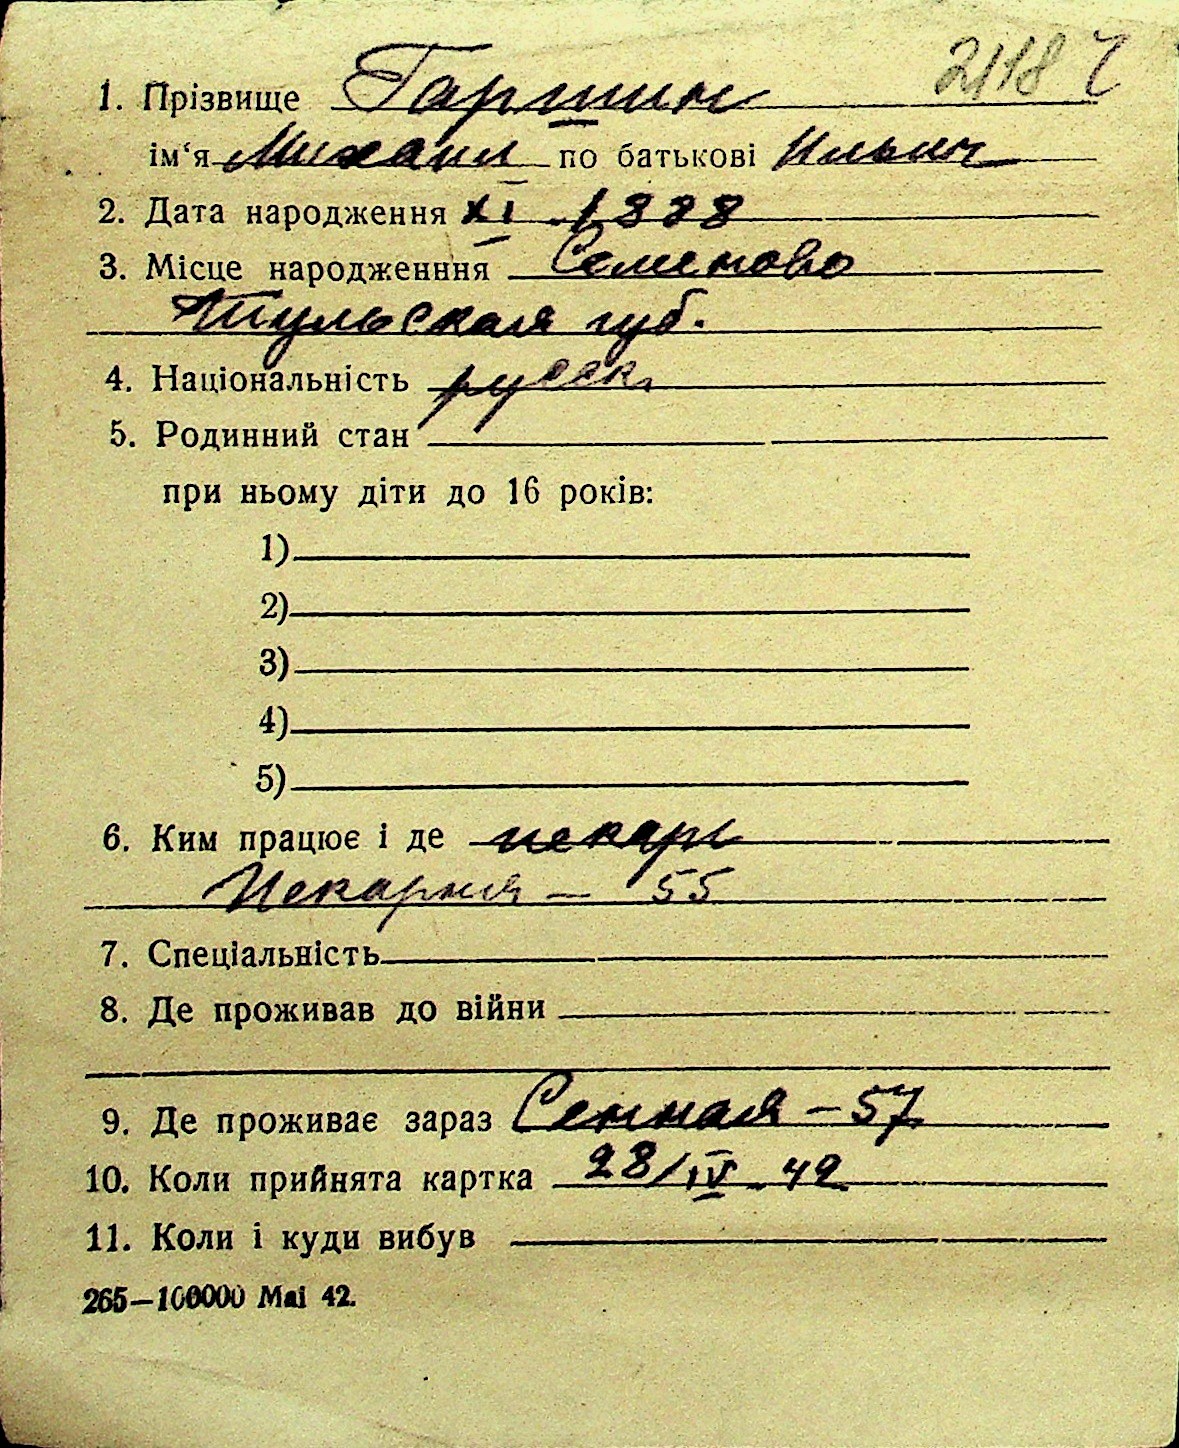 2118
1. Прізвище Гаршин
ім'я Михаил по батькові Ильич
2. Дата народження XI. 1888
3. Місце народженння Семеново
Тульская губ.
4. Національність русск.
5. Родинний стан
при ньому діти до 16 років:
1)
2)
3)
4)
5)
6. Ким працює і де пекарь
Пекарня — 55
7. Спеціальність
8. Де проживав до війни
9. Де проживає зараз Сенная — 57
10. Коли прийнята картка 28/IV. 42
11. Коли і куди вибув
265—100000 Mai 42.